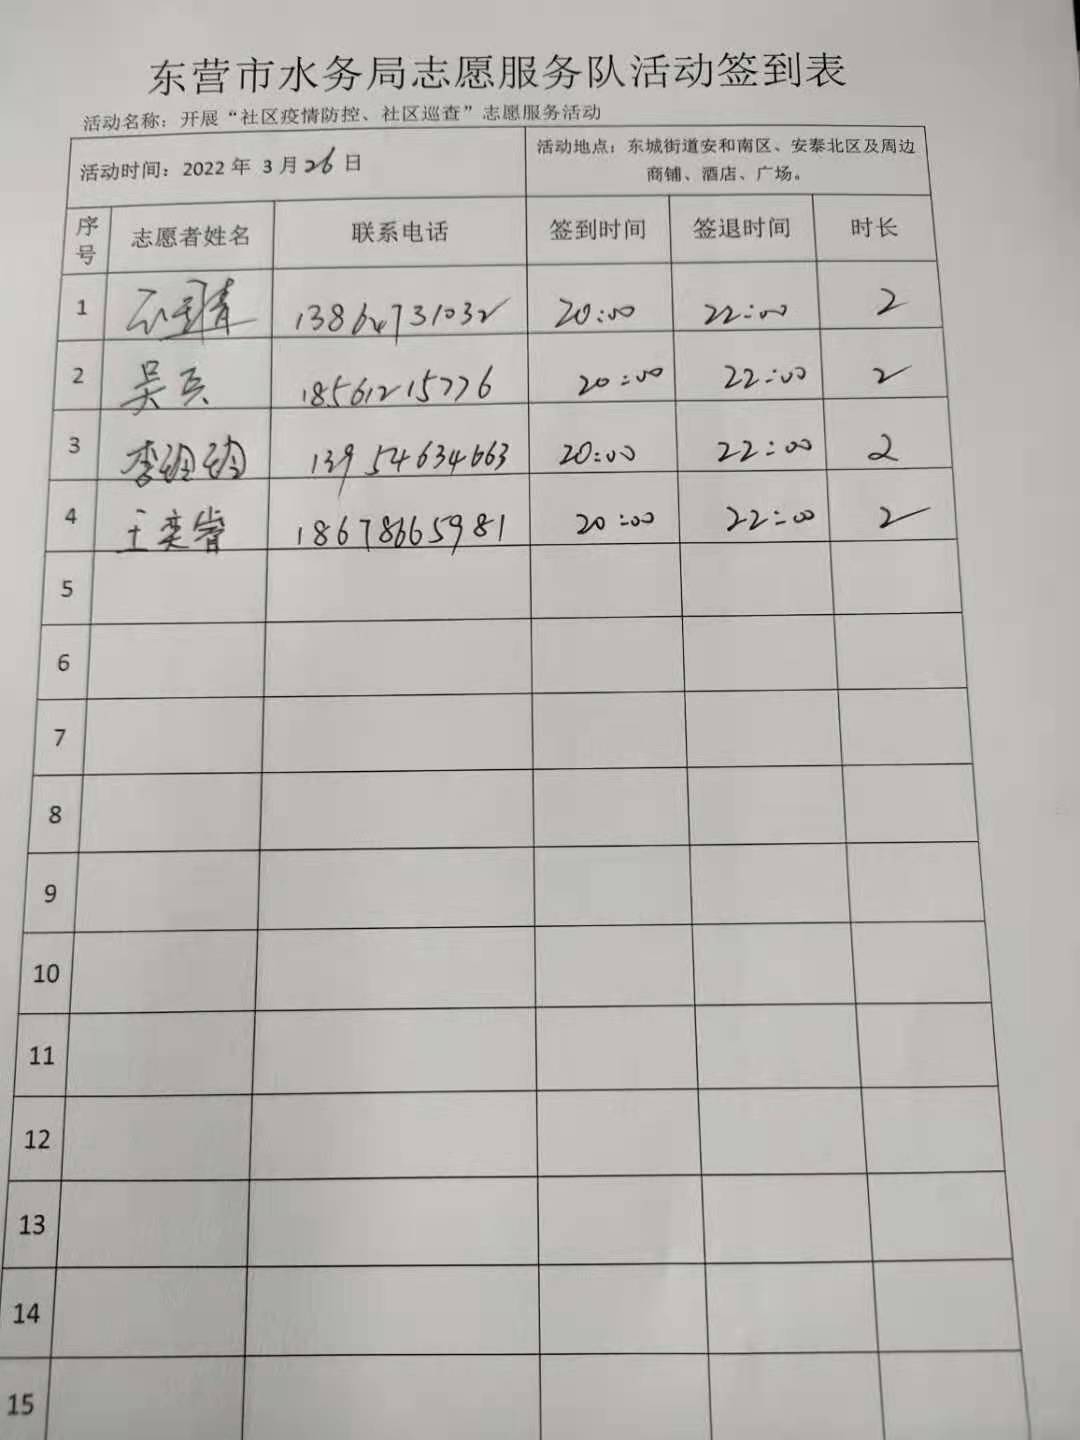 东营市水务局志愿服务队活动签到表
活动名称：开展“社区疫情防控、社区巡查”志愿服务活动
活动时间：2022 年 3 月 26 日 活动地点：东城街道安和南区、安泰北区及周边
商铺、酒店、广场。
序号 志愿者姓名 联系电话 签到时间 签退时间 时长
1 13864731032 20:00 22:00 2
2 吴兵 18561215776 20:00 22:00 2
3 李玲玲 13954634663 20:00 22:00 2
4 王奕睿 18678665981 20:00 22:00 2
5
6
7
8
9
10
11
12
13
14
15